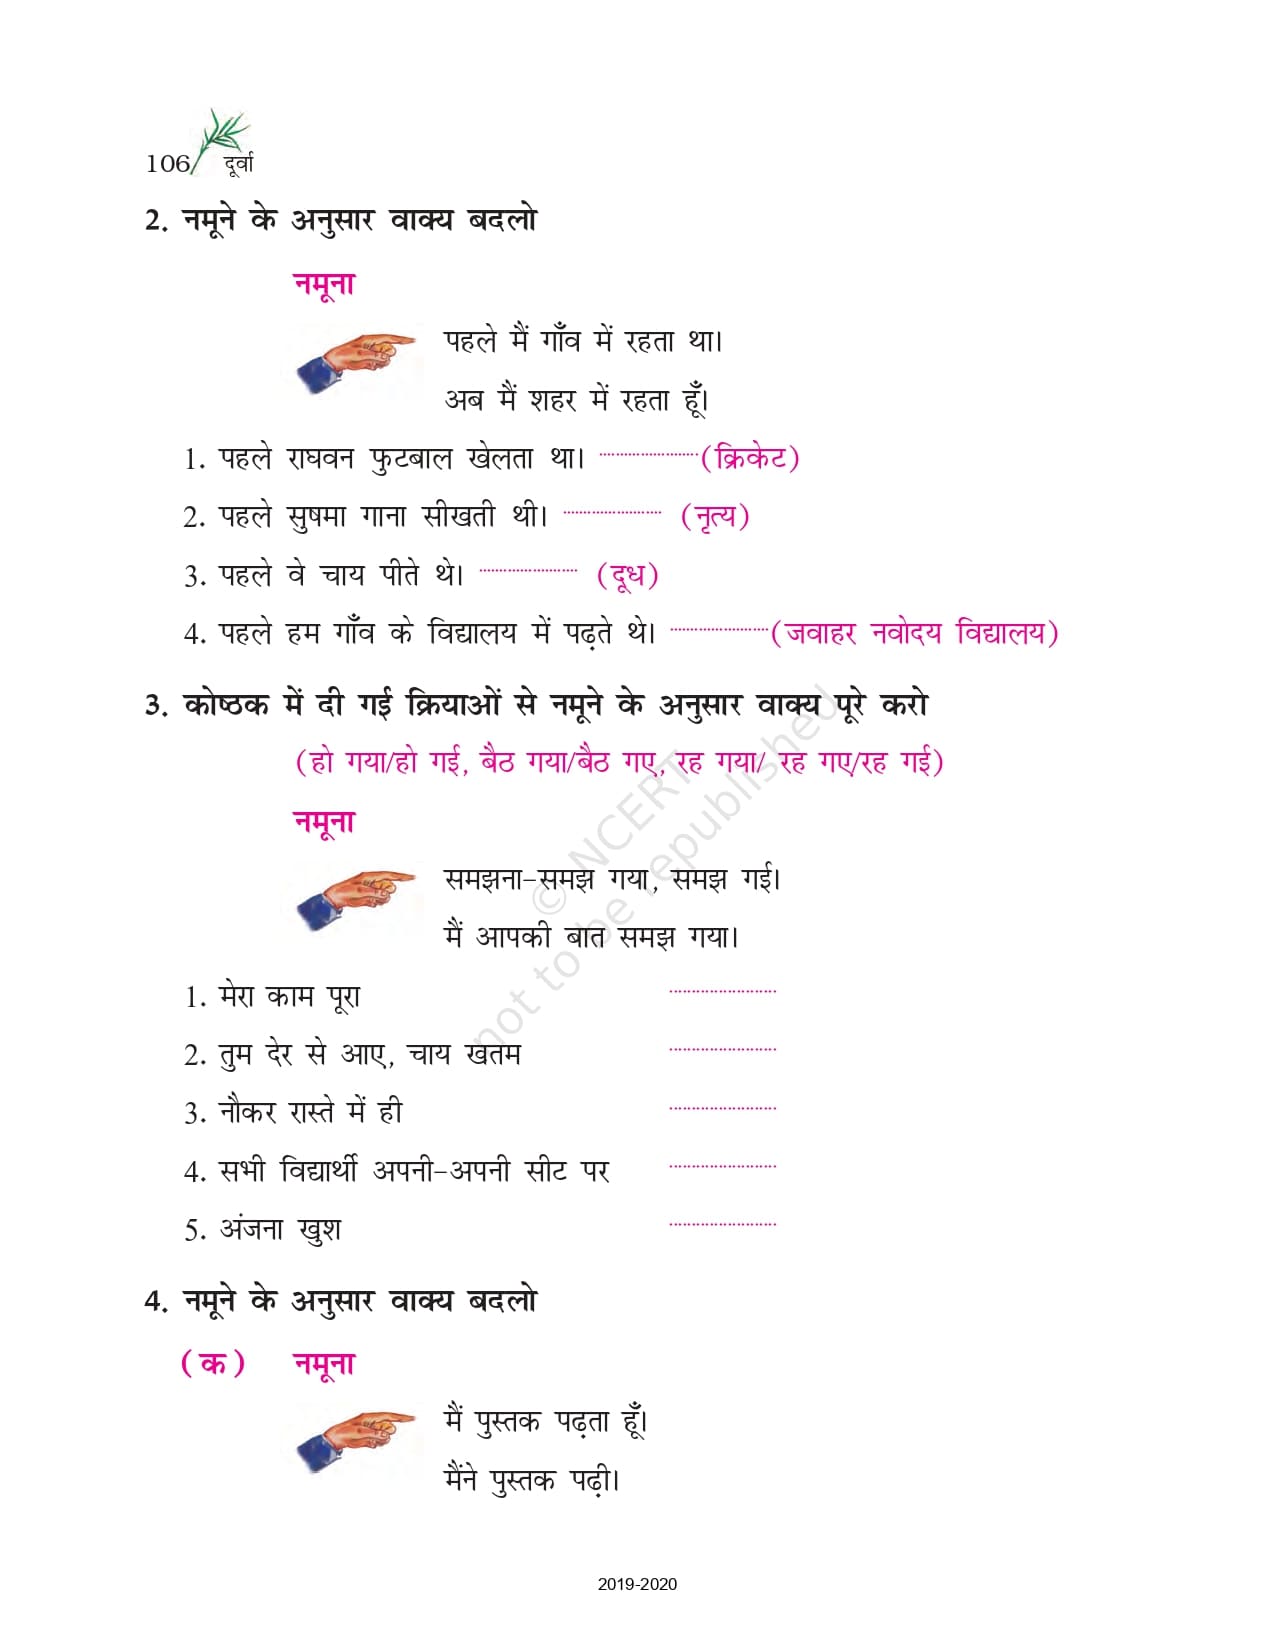 106 दूर्वा
2. नमूने के अनुसार वाक्य बदलो
नमूना
पहले मैं गाँव में रहता था।
अब मैं शहर में रहता हूँ।
1. पहले राघवन फुटबाल खेलता था। ........................(क्रिकेट)
2. पहले सुषमा गाना सीखती थी। ........................ (नृत्य)
3. पहले वे चाय पीते थे। ........................ (दूध)
4. पहले हम गाँव के विद्यालय में पढ़ते थे। ........................(जवाहर नवोदय विद्यालय)
3. कोष्ठक में दी गई क्रियाओं से नमूने के अनुसार वाक्य पूरे करो
(हो गया/हो गई, बैठ गया/बैठ गए, रह गया/ रह गए/रह गई)
नमूना
समझना–समझ गया, समझ गई।
मैं आपकी बात समझ गया।
1. मेरा काम पूरा ........................
2. तुम देर से आए, चाय खतम ........................
3. नौकर रास्ते में ही ........................
4. सभी विद्यार्थी अपनी–अपनी सीट पर ........................
5. अंजना खुश ........................
4. नमूने के अनुसार वाक्य बदलो
(क) नमूना
मैं पुस्तक पढ़ता हूँ।
मैंने पुस्तक पढ़ी।
2019-2020
© NCERT
not to be republished